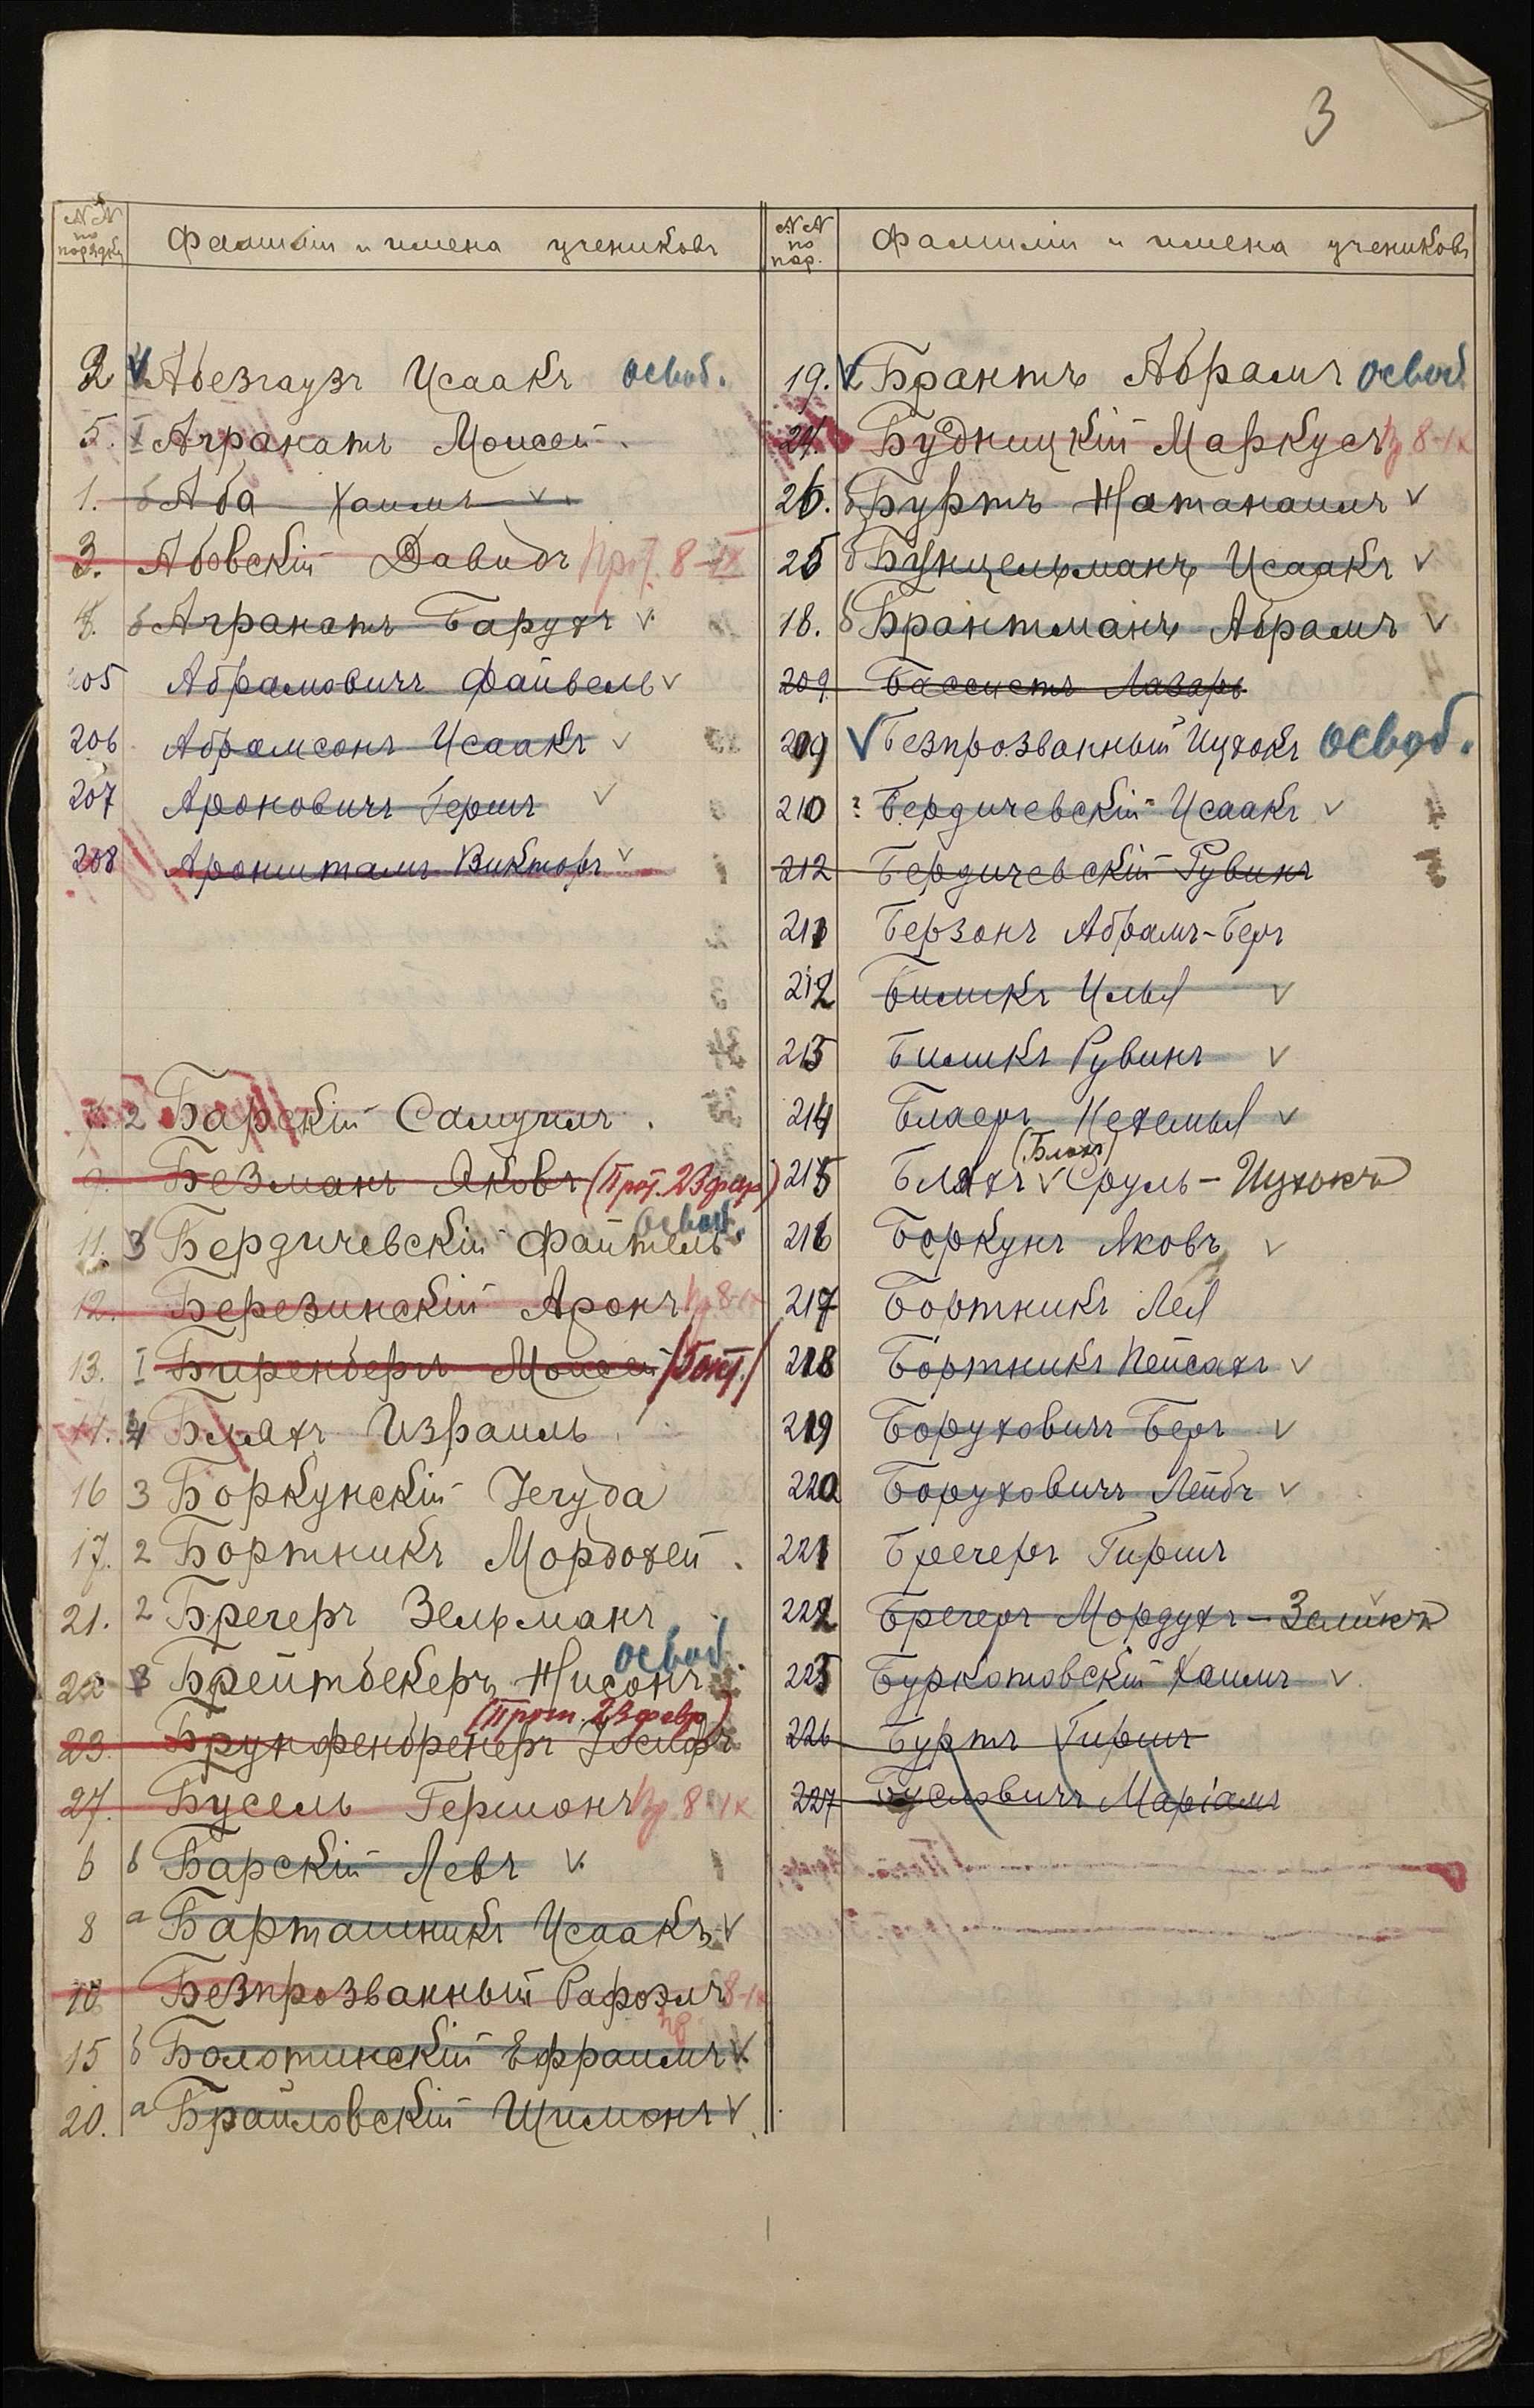 3
№№ по порядку
Фамиліи и имена учениковъ
2 Абезгаузъ Исаакъ освоб.
5. I Агранатъ Моисей.
1. б Аба Хаимъ v
3. Абовскій Давидъ Прот. 8-IX
4. б Агранатъ Барухъ v
205 Абрамовичъ Файвель v
206 Абрамсонъ Исаакъ v
207 Ароновичъ Гершъ v
208 Ароништамъ Викторъ v
2 Барскій Самуилъ.
9. Безманъ Яковъ (Прот. 23 фев)
11. 3 Бердичевскій Файтель освоб.
12. Березинскій Аронъ Пр 8-IX
13. I Биренбергъ Моисей
14. 4 Бляхъ Израиль
16 3 Боркунскій Іегуда
17. 2 Бортникъ Мордохей.
21. 2 Брегеръ Зельманъ
22 3 Брейтбекеръ Нисонъ освоб.
(Прот. 23 февр)
23. Брунфенбренеръ Іосифъ
27. Бусель Гершонъ Пр 8-IX
6 б Барскій Левъ v.
8 а Барташникъ Исаакъ v
10 Безпрозванный Рафаэлъ пр 8-IX
15 б Болотинскій Ефраимъ v
20. а Браиловскій Шимонъ v
№№ по пор.
Фамиліи и имена учениковъ
19. Брантъ Абрамъ освоб
24. Будницкій Маркусъ Пр 8-IX
26. б Буртъ Натанаилъ v
25 б Бунцельманъ Исаакъ v
18. б Брантманъ Абрамъ v
209 Бассистъ Лазарь
209 v Безпрозванный Ицхокъ освоб.
210 ? Бердичевскій Исаакъ v
212 Бердичевскій Рувинъ
211 Берзонъ Абрамъ-Беръ
212 Биликъ Илья v
213 Биликъ Рувинъ v
214 Блаеръ Нехемья v
(Блохъ)
215 Бляхъ v Сруль-Ицхокъ
216 Боркунъ Яковъ v
217 Бортникъ Лея
218 Бортникъ Пейсахъ v
219 Боруховичъ Беръ v
220 Боруховичъ Лейбъ v
221 Брегеръ Гиршъ
222 Брегеръ Мордухъ-Зеликъ v
223 Буркотовскій Хаимъ v
226 Буртъ Гиршъ
227 Бусловичъ Маріамъ